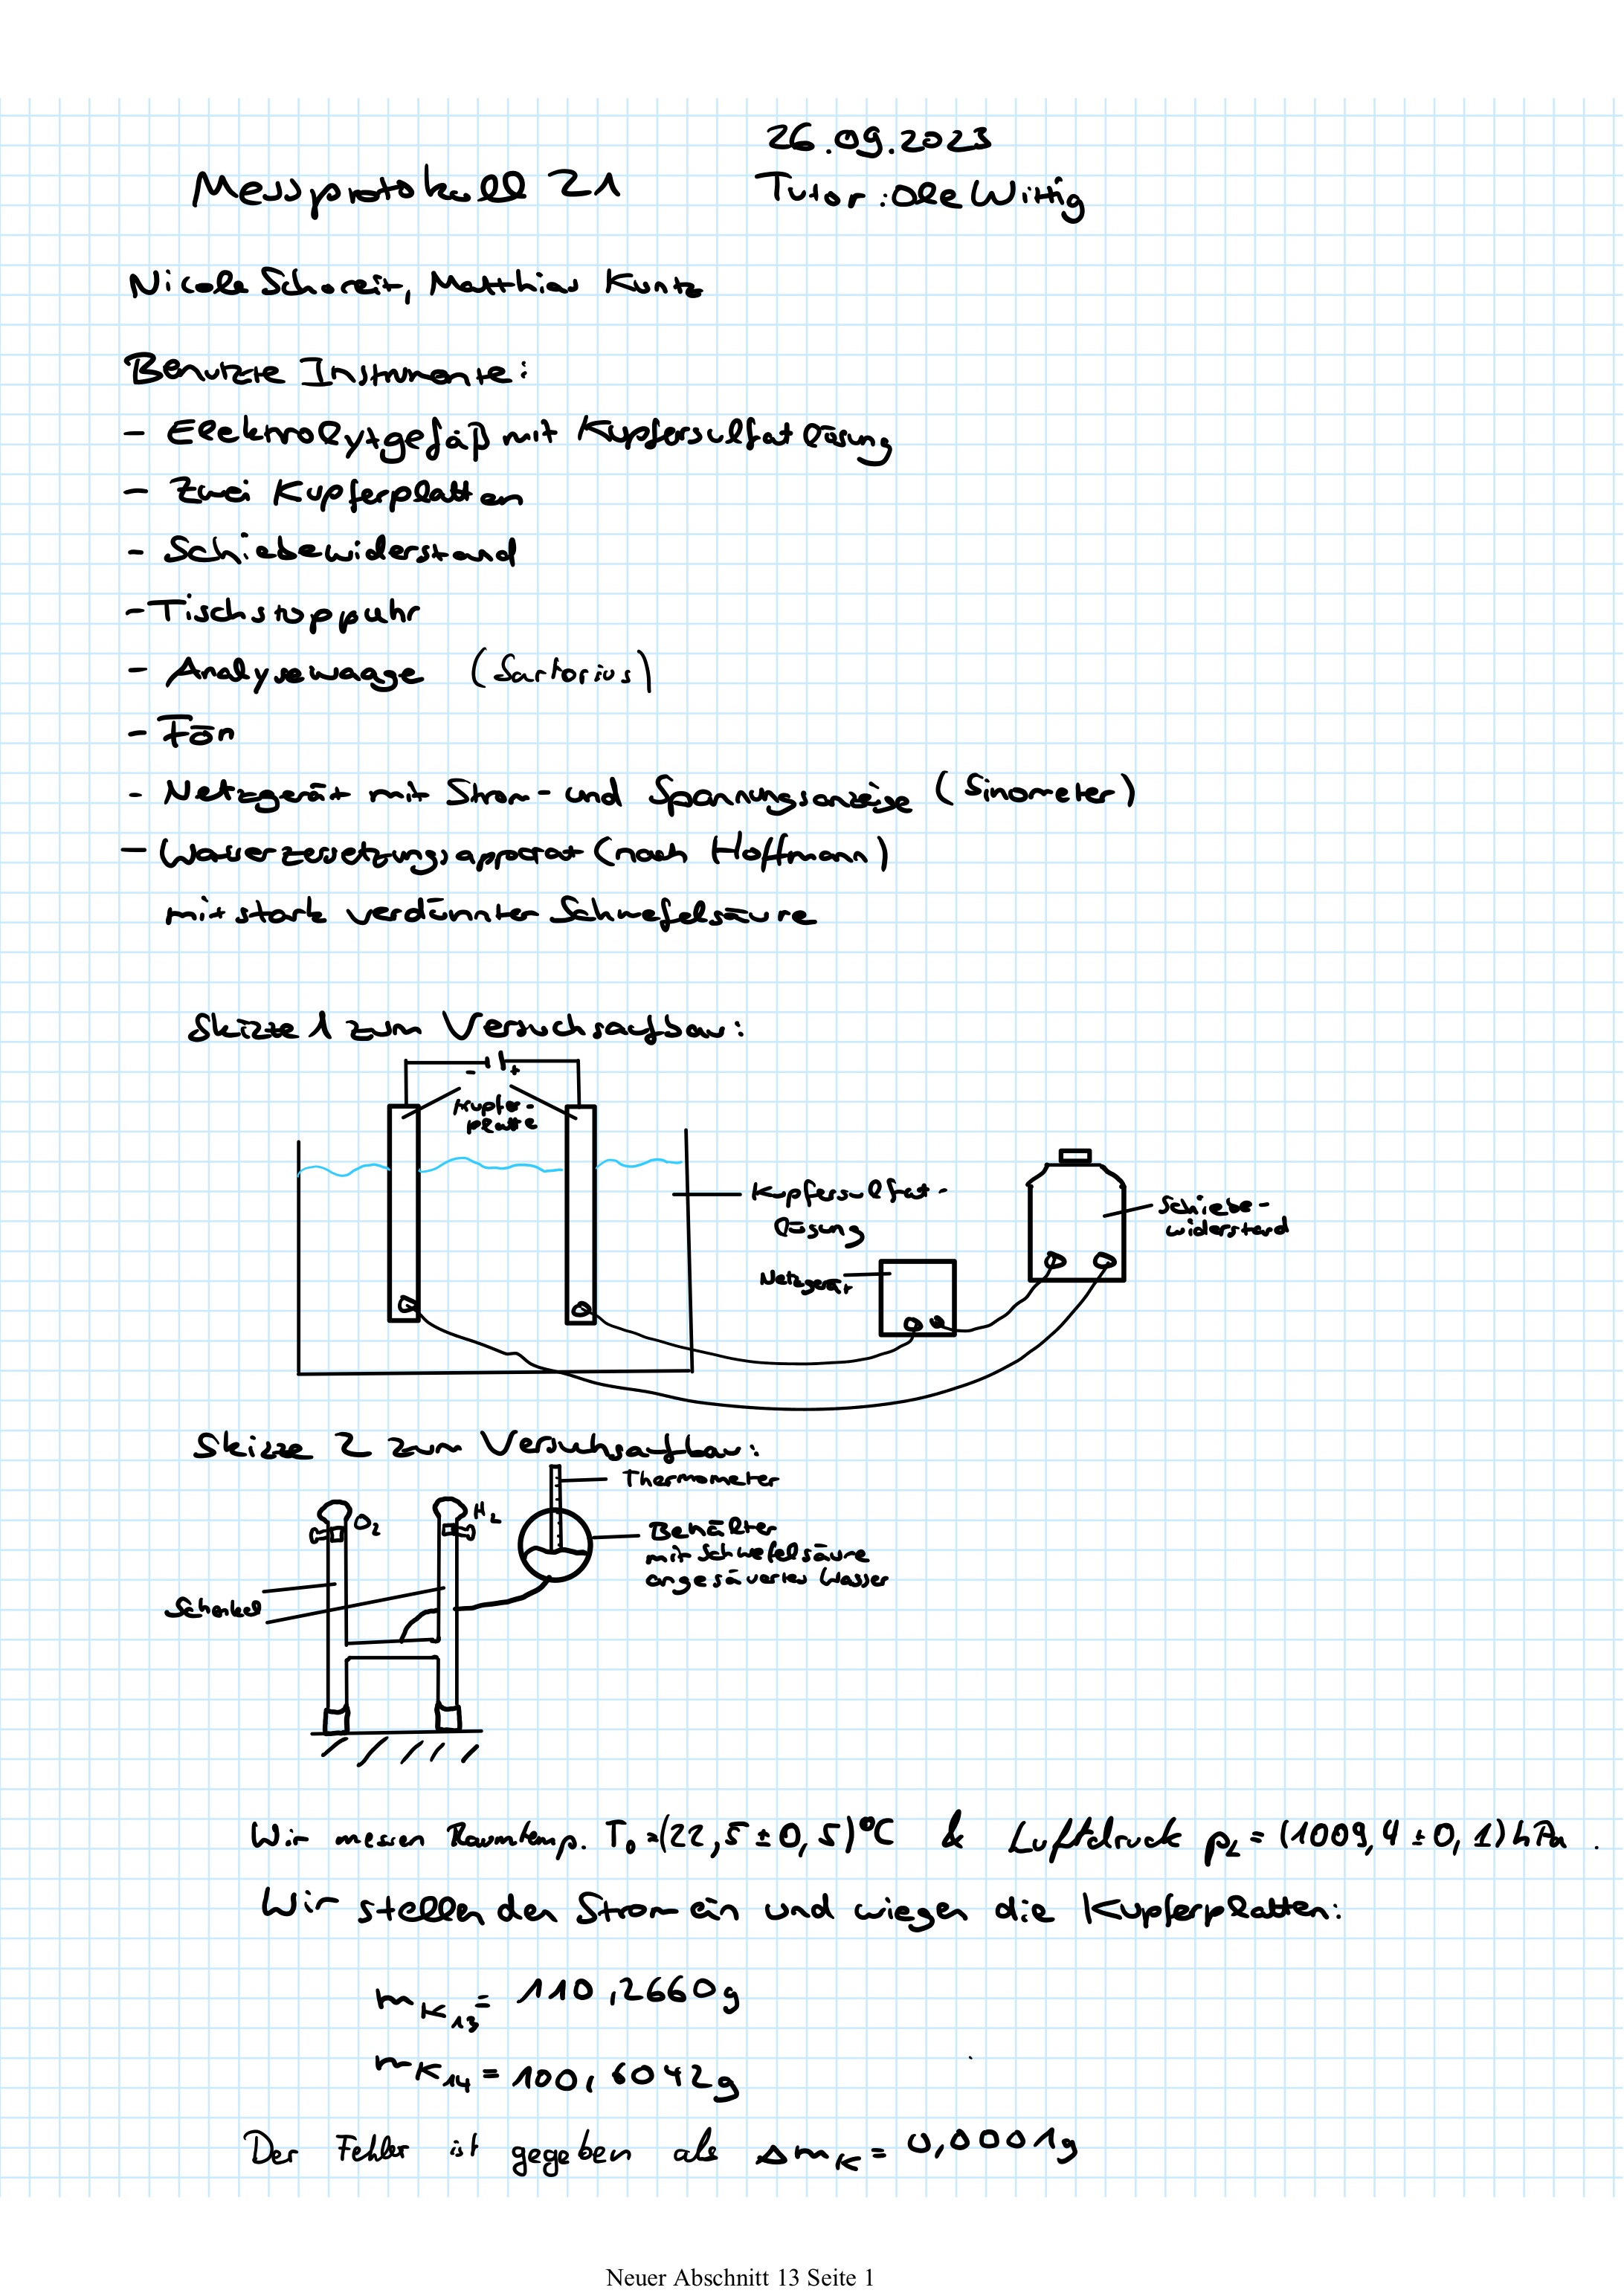 26.09.2023
Messprotokoll 21
Tutor: Ole Wittig
Nicole Schoreit, Matthias Kuntz
Benutzte Instrumente:
- Elektrolytgefäß mit Kupfersulfatlösung
- Zwei Kupferplatten
- Schiebewiderstand
- Tischstoppuhr
- Analysewaage (Sartorius)
- Fön
- Netzgerät mit Strom- und Spannungsanzeige (Sinometer)
- Wasserzersetzungsapparat (nach Hoffmann)
mit stark verdünnter Schwefelsäure
Skizze 1 zum Versuchsaufbau:
- +
Kupfer-
platte
Kupfersulfat-
lösung
Schiebe-
widerstand
Netzgerät
Skizze 2 zum Versuhsaufbau:
Thermometer
O₂
H₂
Behälter
mit Schwefelsäure
angesäuertes Wasser
Schenkel
Wir messen Raumtemp. T₀ = (22,5 ± 0,5)°C & Luftdruck p_L = (1009,4 ± 0,1) hPa.
Wir stellen den Strom ein und wiegen die Kupferplatten:
m_K₁₃ = 110,2660g
m_K₁₄ = 100,6042g
Der Fehler ist gegeben als Δm_K = 0,0001g
Neuer Abschnitt 13 Seite 1